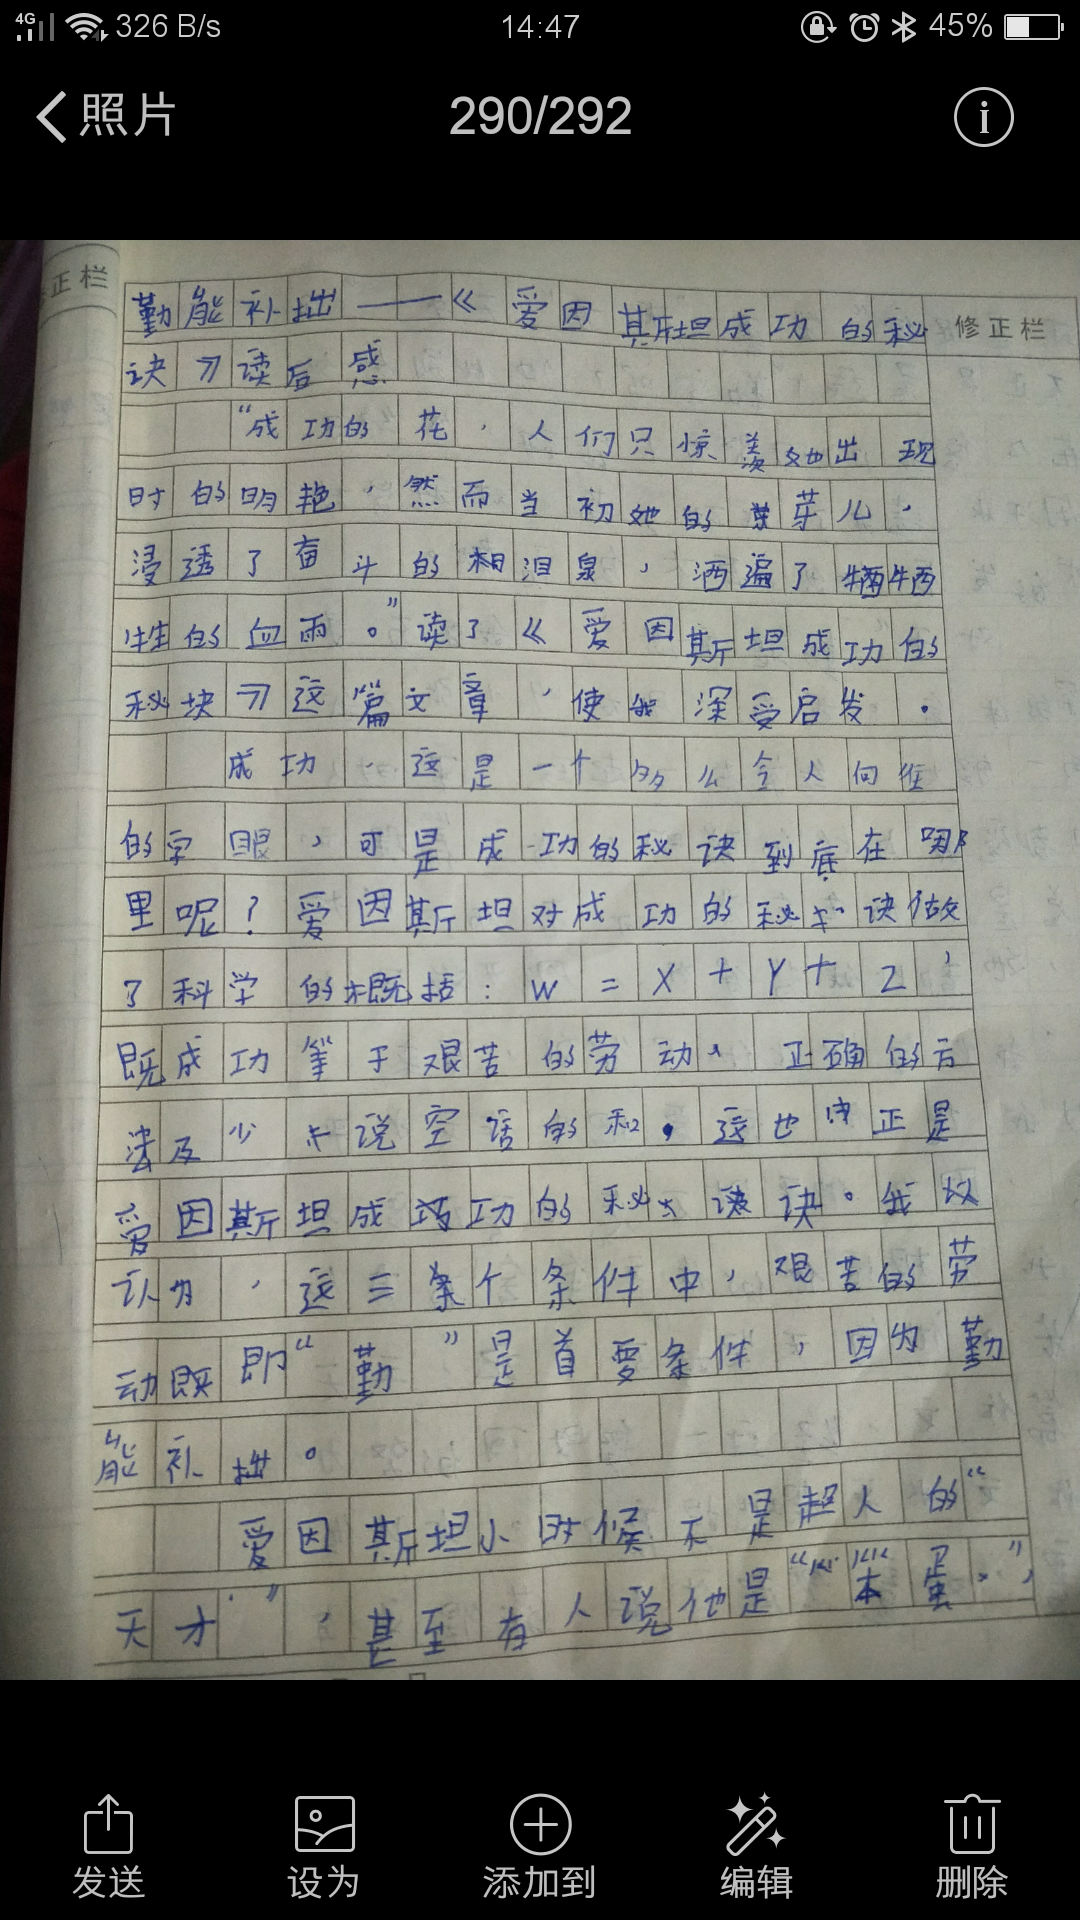 4G 326 B/s 14:47 45%
照片 290/292
正栏
勤能补拙——《爱因斯坦成功的秘 修正栏
诀》读后感
“成功的花，人们只惊羡她出现
时的明艳，然而当初她的芽儿，
浸透了奋斗的泪泉，洒遍了牺
牲的血雨。”读了《爱因斯坦成功的
秘块》这篇文章，使我深受启发。
成功，这是一个多么令人向往
的字眼，可是成功的秘诀到底在哪
里呢？爱因斯坦对成功的秘诀做
了科学的概括：W=X+Y+Z，
既成功等于艰苦的劳动、正确的方
法及少说空话的和。这也正是
爱因斯坦成功的秘诀。我
认为，这三条个条件中，艰苦的劳
动既即“勤”是首要条件，因为勤
能补拙。
爱因斯坦小时候不是超人的“
天才”，甚至有人说他是“笨蛋。”，
发送 设为 添加到 编辑 删除